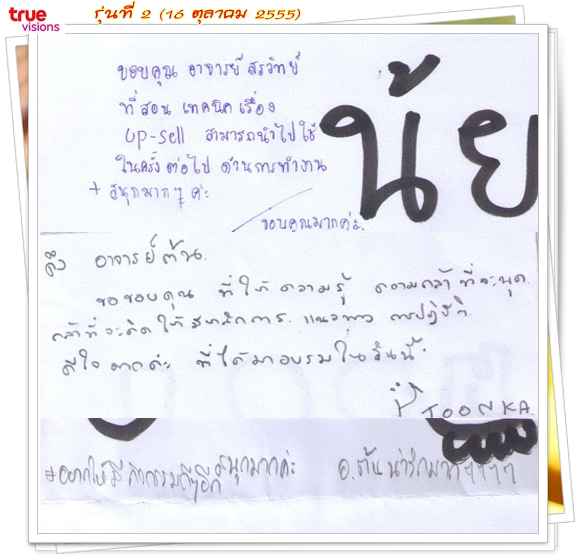 true
visions
รุ่นที่ 2 (16 ตุลาคม 2555)
ขอบคุณ อาจารย์ สรวิทย์
ที่สอน เทคนิคเรื่อง
UP-Sell สามารถนำไปใช้
ในครั้งต่อไป ด้านการทำงาน
+ สนุกมากๆ ค่ะ
ขอบคุณมากค่ะ.
นุ้ย
ถึง อาจารย์ต้น.
ขอขอบคุณ ที่ให้ความรู้ ความกล้าที่จะพูด
กล้าที่จะคิด ให้ แนวทาง การปฏิบัติ
ดีใจมากค่ะ ที่ได้มาอบรมในวันนี้
TOONKA
อยากให้มีกิจกรรมดีๆอีก สนุกมากค่ะ
อ.ต้น น่ารักมากๆๆๆๆ